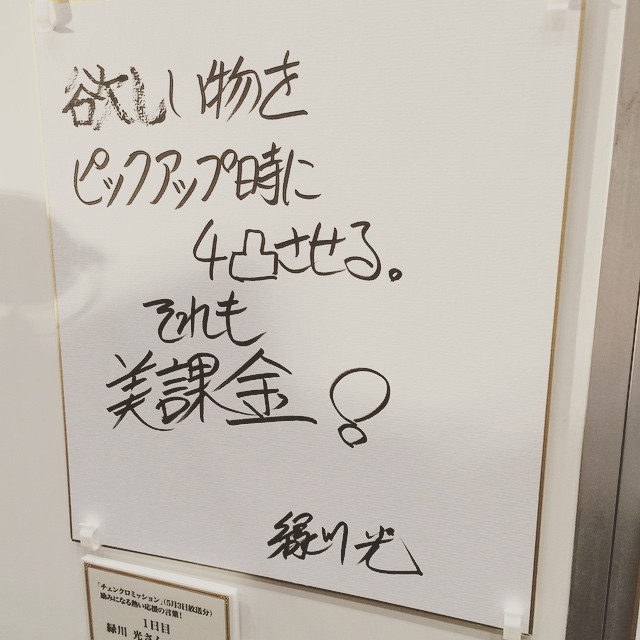 欲しい物を
ピックアップ時に
4凸させる。
それも
美課金!
緑川光
「チェンクロミッション」(5月3日放送分)
励みになる熱い応援の言葉!
1日目
緑川 光さん